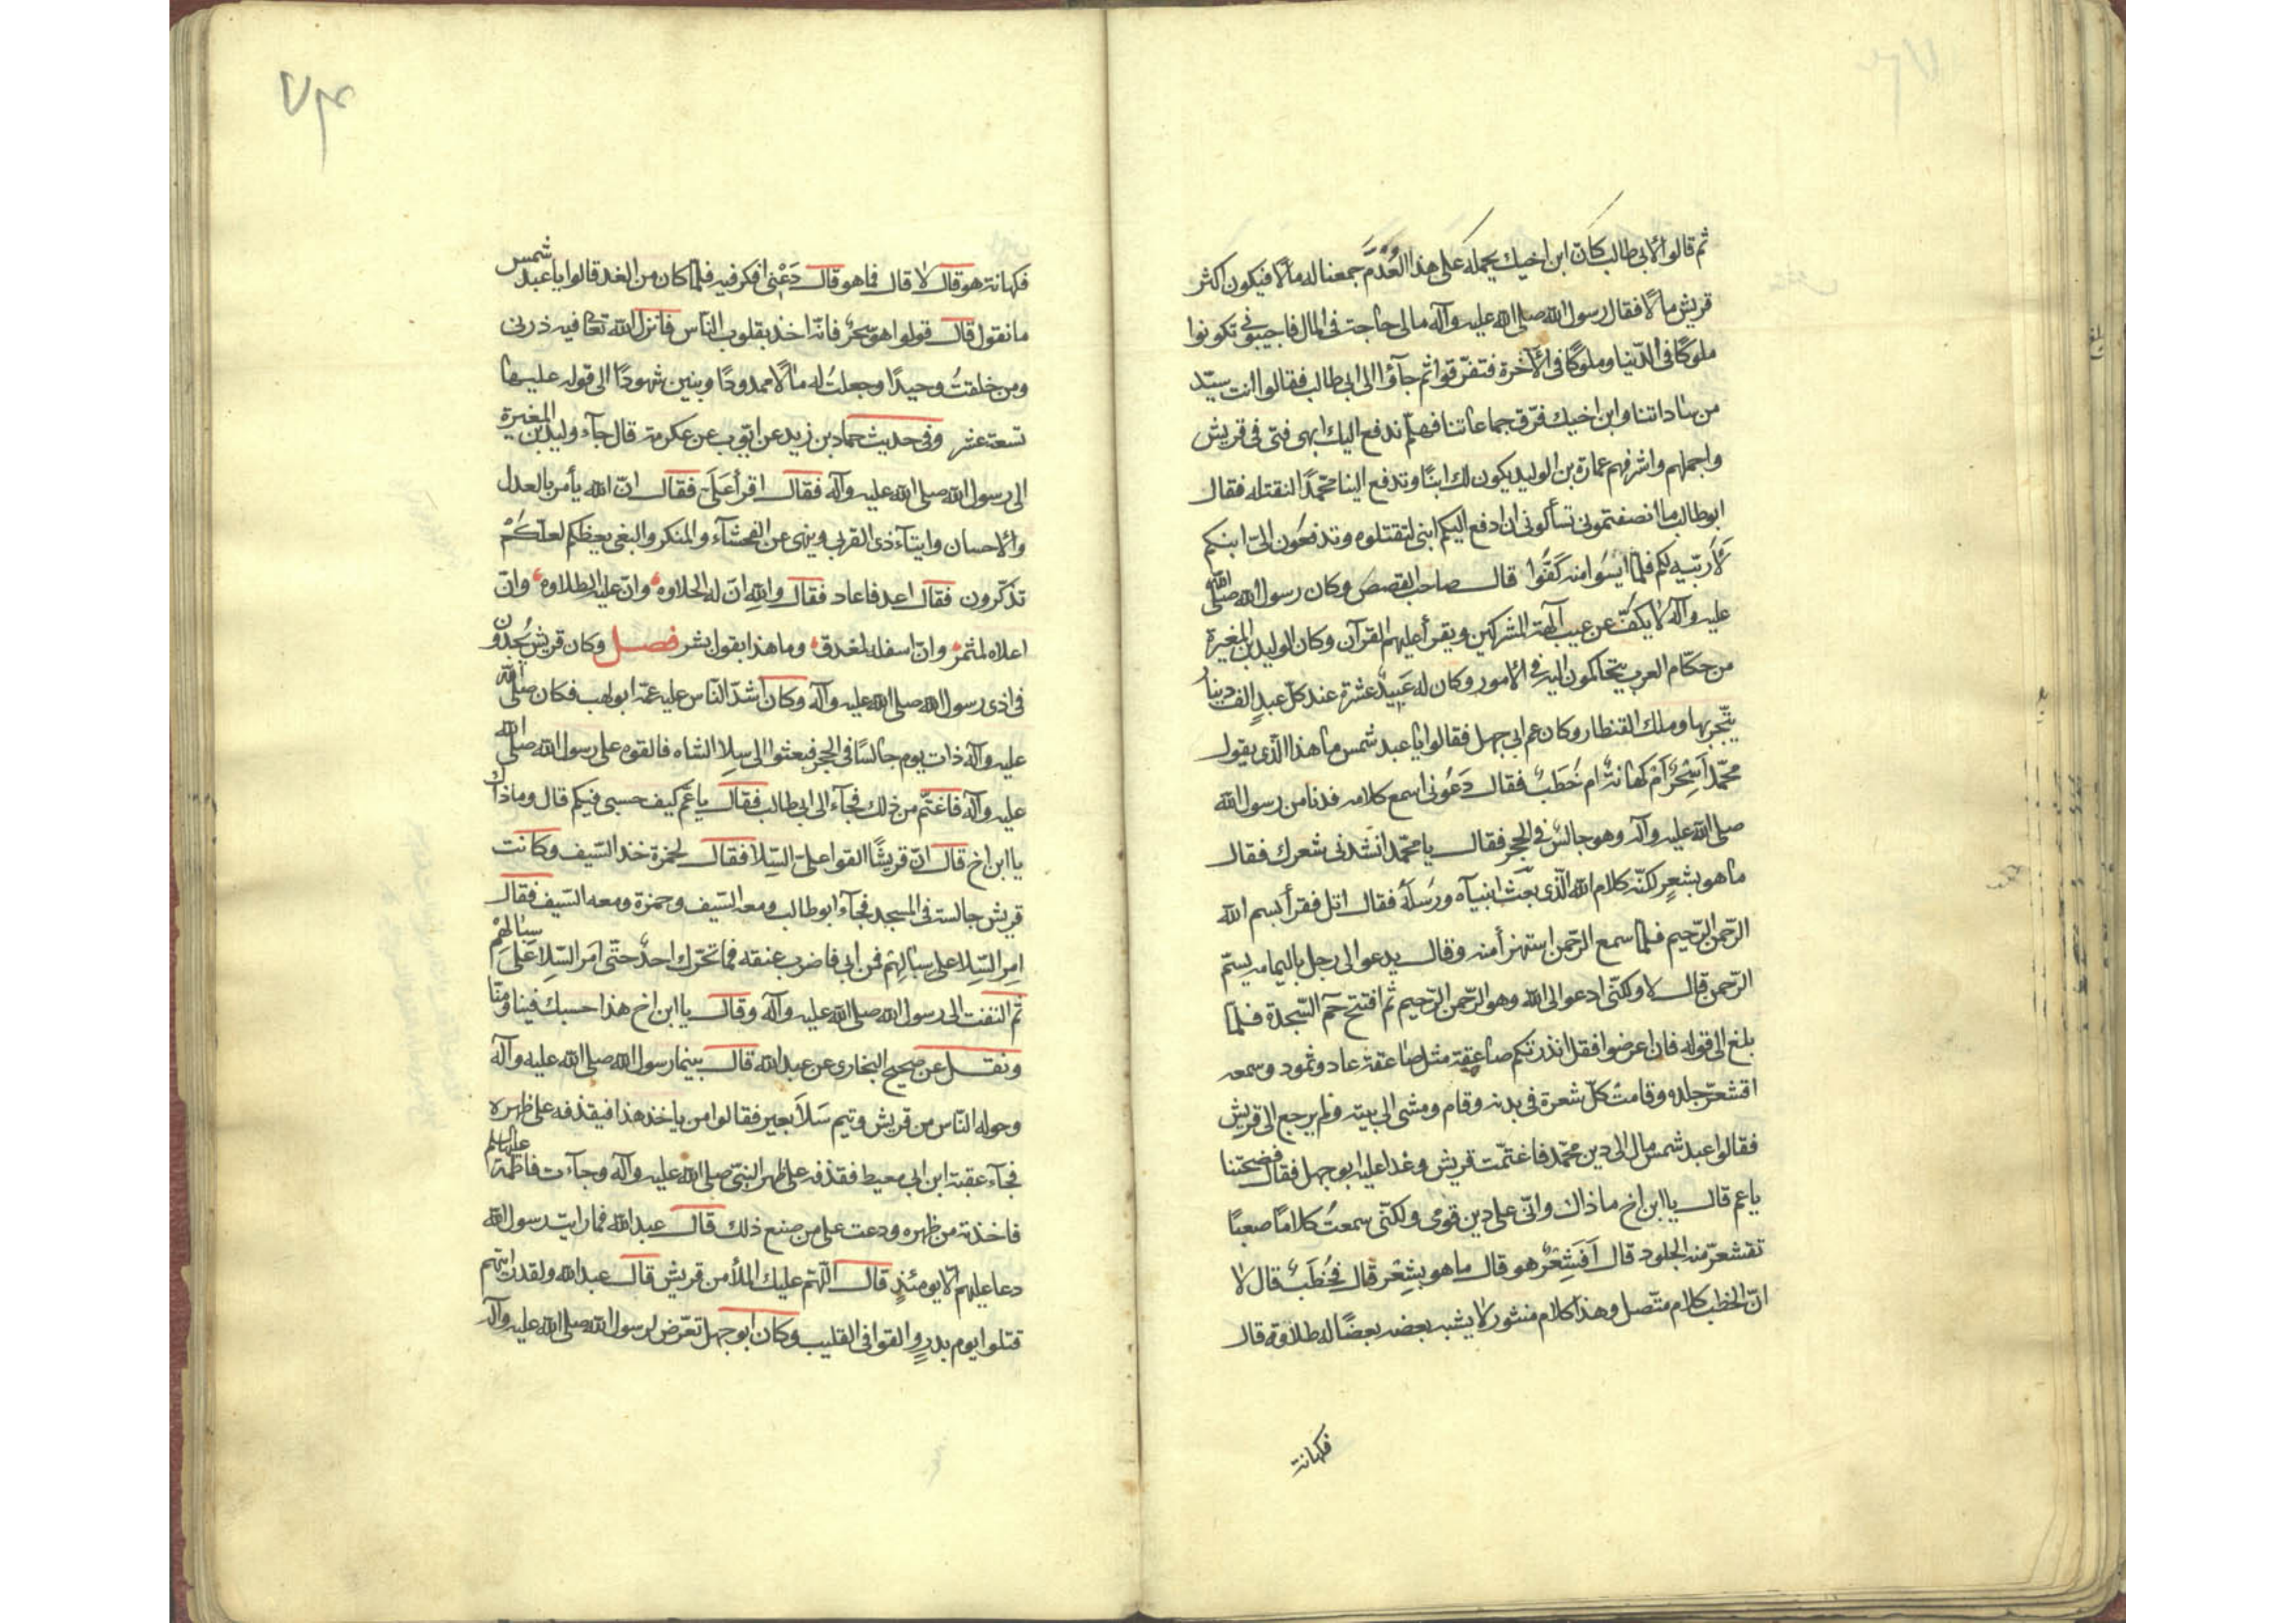 ثم قالوا لابى طالب كان ابن اخيك يحمله على هذا العُدْمُ جمعنا له مالا فيكون اكثر
قريش مالًا فقال رسول الله صلى الله عليه وآله مالى حاجة فى المال فاجيبونى تكونوا
ملوكًا فى الدّنيا وملوكًا فى الآخرة فتفرّقوا ثم جآؤا الى ابى طالب فقالوا انت سيّد
من ساداتنا وابن اخيك فرّق جماعاتنا فهلمّ ندفع اليك ابهى فتى فى قريش
واجملهم واشرفهم عمارة بن الوليد يكون لك ابنًا وتدفع الينا محمّدًا لنقتله فقال
ابوطالب ما انصفتمونى تسألونى ان ادفع اليكم ابنى لتقتلوه وتدفعُون الىّ ابنكم
لَأُربّيه لكم فلمّا ايسُوا منه كَفُّوا قال صاحب القصص وكان رسول الله صلى الله
عليه وآله لا يكفّ عن عيب آلهة المشركين ويقرأ عليهم القرآن وكان الوليد بن المغيرة
من حكّام العرب يتحاكمون اليه فى الامور وكان له عَبيدٌ عشرة عند كلّ عبدٍ الف دينار
يتّجر بها وملك القنطار وكان عم ابى جهل فقالوا يا عبد شمس ما هذا الّذى يقول
محمّد أسِحْرٌ اَمْ كهانةٌ ام خُطَبٌ فقال دَعُونى اسمع كلامه فدنا من رسول الله
صلى الله عليه وآله وهو جالسٌ فى الحجر فقال يا محمّد انشدنى شعرك فقال
ما هو بشعرٍ لكنّه كلام الله الّذى بعَث انبيآه ورُسلَهُ فقال اتل فقرأ بسم الله
الرّحمن الرّحيم فلمّا سمع الرّحمن استهزأ منه وقال يدعو الى رجل باليمامه يسمّ
الرّحمن قال لا ولكنّى ادعو الى الله وهو الرّحمن الرّحيم ثم افتتح حم السّجدة فلمّا
بلغ الى قوله فان اعرضوا فقل انذرتكم صاعقة مثل صاعقة عاد وثمود وسمعه
اقشعرّ جلده وقامت كلّ شعرة فى بدنه وقام ومشى الى بيته ولم يرجع الى قريش
فقالوا عبد شمس مال الى دين محمّد فاغتمّت قريش وغدا عليه ابو جهل فقال فضحتنا
يا عم قال يا ابن اخ ما ذاك وانّى على دين قومى ولكنّى سمعتُ كلامًا صعبًا
تقشعرّ منه الجلود قال اَفَشِعْرٌ هو قال ما هو بشِعْر قال فخُطَبٌ قال لا
انّ الخطب كلام متّصل وهذا كلام منثور لا يشبه بعضه بعضًا له طلاوة قال
فكهانة
فكهانة هو قال لا قال فما هو قال دَعْنى افكر فيه فلمّا كان من الغد قالوا يا عبد شمس
ما نقول قال قولوا هو سحرٌ فانّه اخذ بقلوب النّاس فانزل الله تعا فيه ذرنى
ومن خلقتُ وحيدًا وجعلتُ له مالًا ممدودًا وبنين شهودًا الى قوله عليها
تسعة عشر وفى حديث حماد بن زيد عن ايّوب عن عكرمة قال جآء وليد بن المغيرة
الى رسول الله صلى الله عليه وآله فقال اقرأ عَلَىّ فقال انّ الله يأمر بالعدل
والاحسان وايتآء ذى القربى وينهى عن الفحشآء والمنكر والبغى يعظكم لعلّكُمْ
تذكّرون فقال اعد فاعاد فقال والله انّ له الحلاوه وانّ عليه لطلاوه وانّ
اعلاه لمثمر وانّ اسفله لمغدق وما هذا بقول بشر فصل وكان قريش يُجدّون
فى اذى رسول الله صلى الله عليه وآله وكان اشدّ النّاس عليه عمّه ابولهب فكان صلى الله
عليه وآله ذات يوم جالسًا فى الحجر فبعثوا الى سِلا الشاه فالقوه على رسول الله صلى الله
عليه وآله فاغتمّ من ذلك فجآء الى ابى طالب فقال يا عَمّ كيف حسبى فيكم قال وماذاك
يا ابن اخ قال انّ قريشًا القوا علىّ السِّلا فقال لحمزة خذ السّيف وكانت
قريش جالسة فى المسجد فجآء ابو طالب ومعه السّيف وحمزة ومعه السّيف فقال
امِر السّلا على سبالهم فمن ابى فاضرب عنقه فما تحرّك احدٌ حتّى اَمرّ السّلا عَلَى سِبَالِهْم
ثم التفت الى رسول الله صلى الله عليه وآله وقال يا ابن اخ هذا حسبك فينا ومنّا
ونقل عن صحيح البخارى عن عبد الله قال بينما رسول الله صلى الله عليه وآله
وحوله النّاس من قريش وثم سَلَا بعير فقالوا من ياخذ هذا فيقذفه على ظهره
فجآء عقبة ابن ابى معيط فقذفه على ظهر النبىّ صلى الله عليه وآله وجآءت فاطمة عليها السلم
فاخذته من ظهره ودعت على من صنع ذلك قال عبد الله فما رايت رسول الله
دعا عليهم الّا يومئذٍ قال اللّهم عليك الملأ من قريش قال عبد الله ولقد رايتهم
قتلوا يوم بدرٍ والقوا فى القليب وكان ابو جهل تعرّض لرسول الله صلى الله عليه وآله